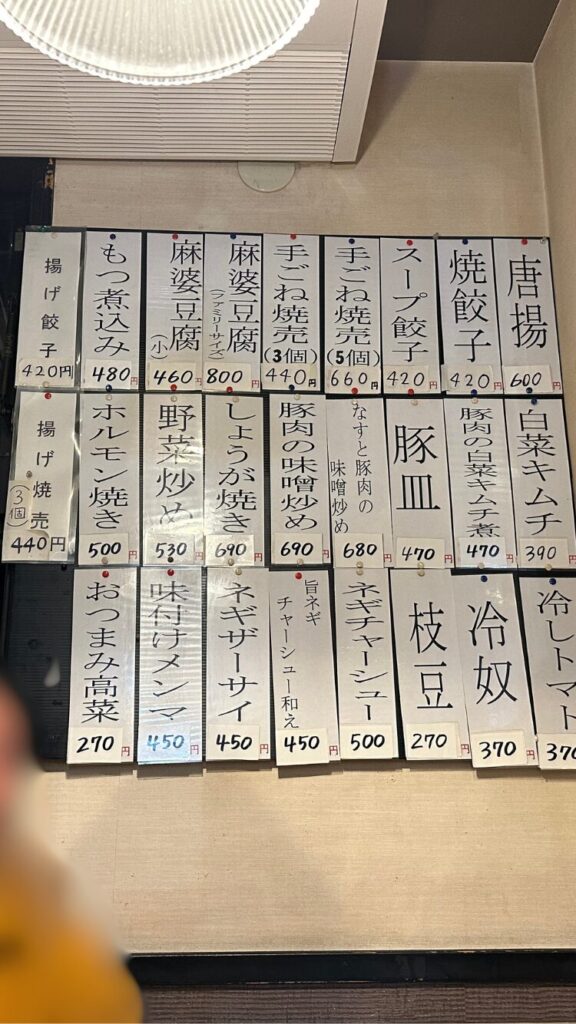 唐揚
600円
焼餃子
420円
スープ餃子
420円
手ごね焼売(5個)
660円
手ごね焼売(3個)
440円
麻婆豆腐
(ファミリーサイズ)
800円
麻婆豆腐
(小)
460円
もつ煮込み
480円
揚げ餃子
420円
白菜キムチ
390円
豚肉の白菜キムチ煮
470円
豚皿
470円
なすと豚肉の
味噌炒め
680円
豚肉の味噌炒め
690円
しょうが焼き
690円
野菜炒め
530円
ホルモン焼き
500円
揚げ焼売
(3個)
440円
冷しトマト
370
冷奴
370円
枝豆
270円
ネギチャーシュー
500円
旨ネギ
チャーシュー和え
450円
ネギザーサイ
450円
味付けメンマ
450円
おつまみ高菜
270円